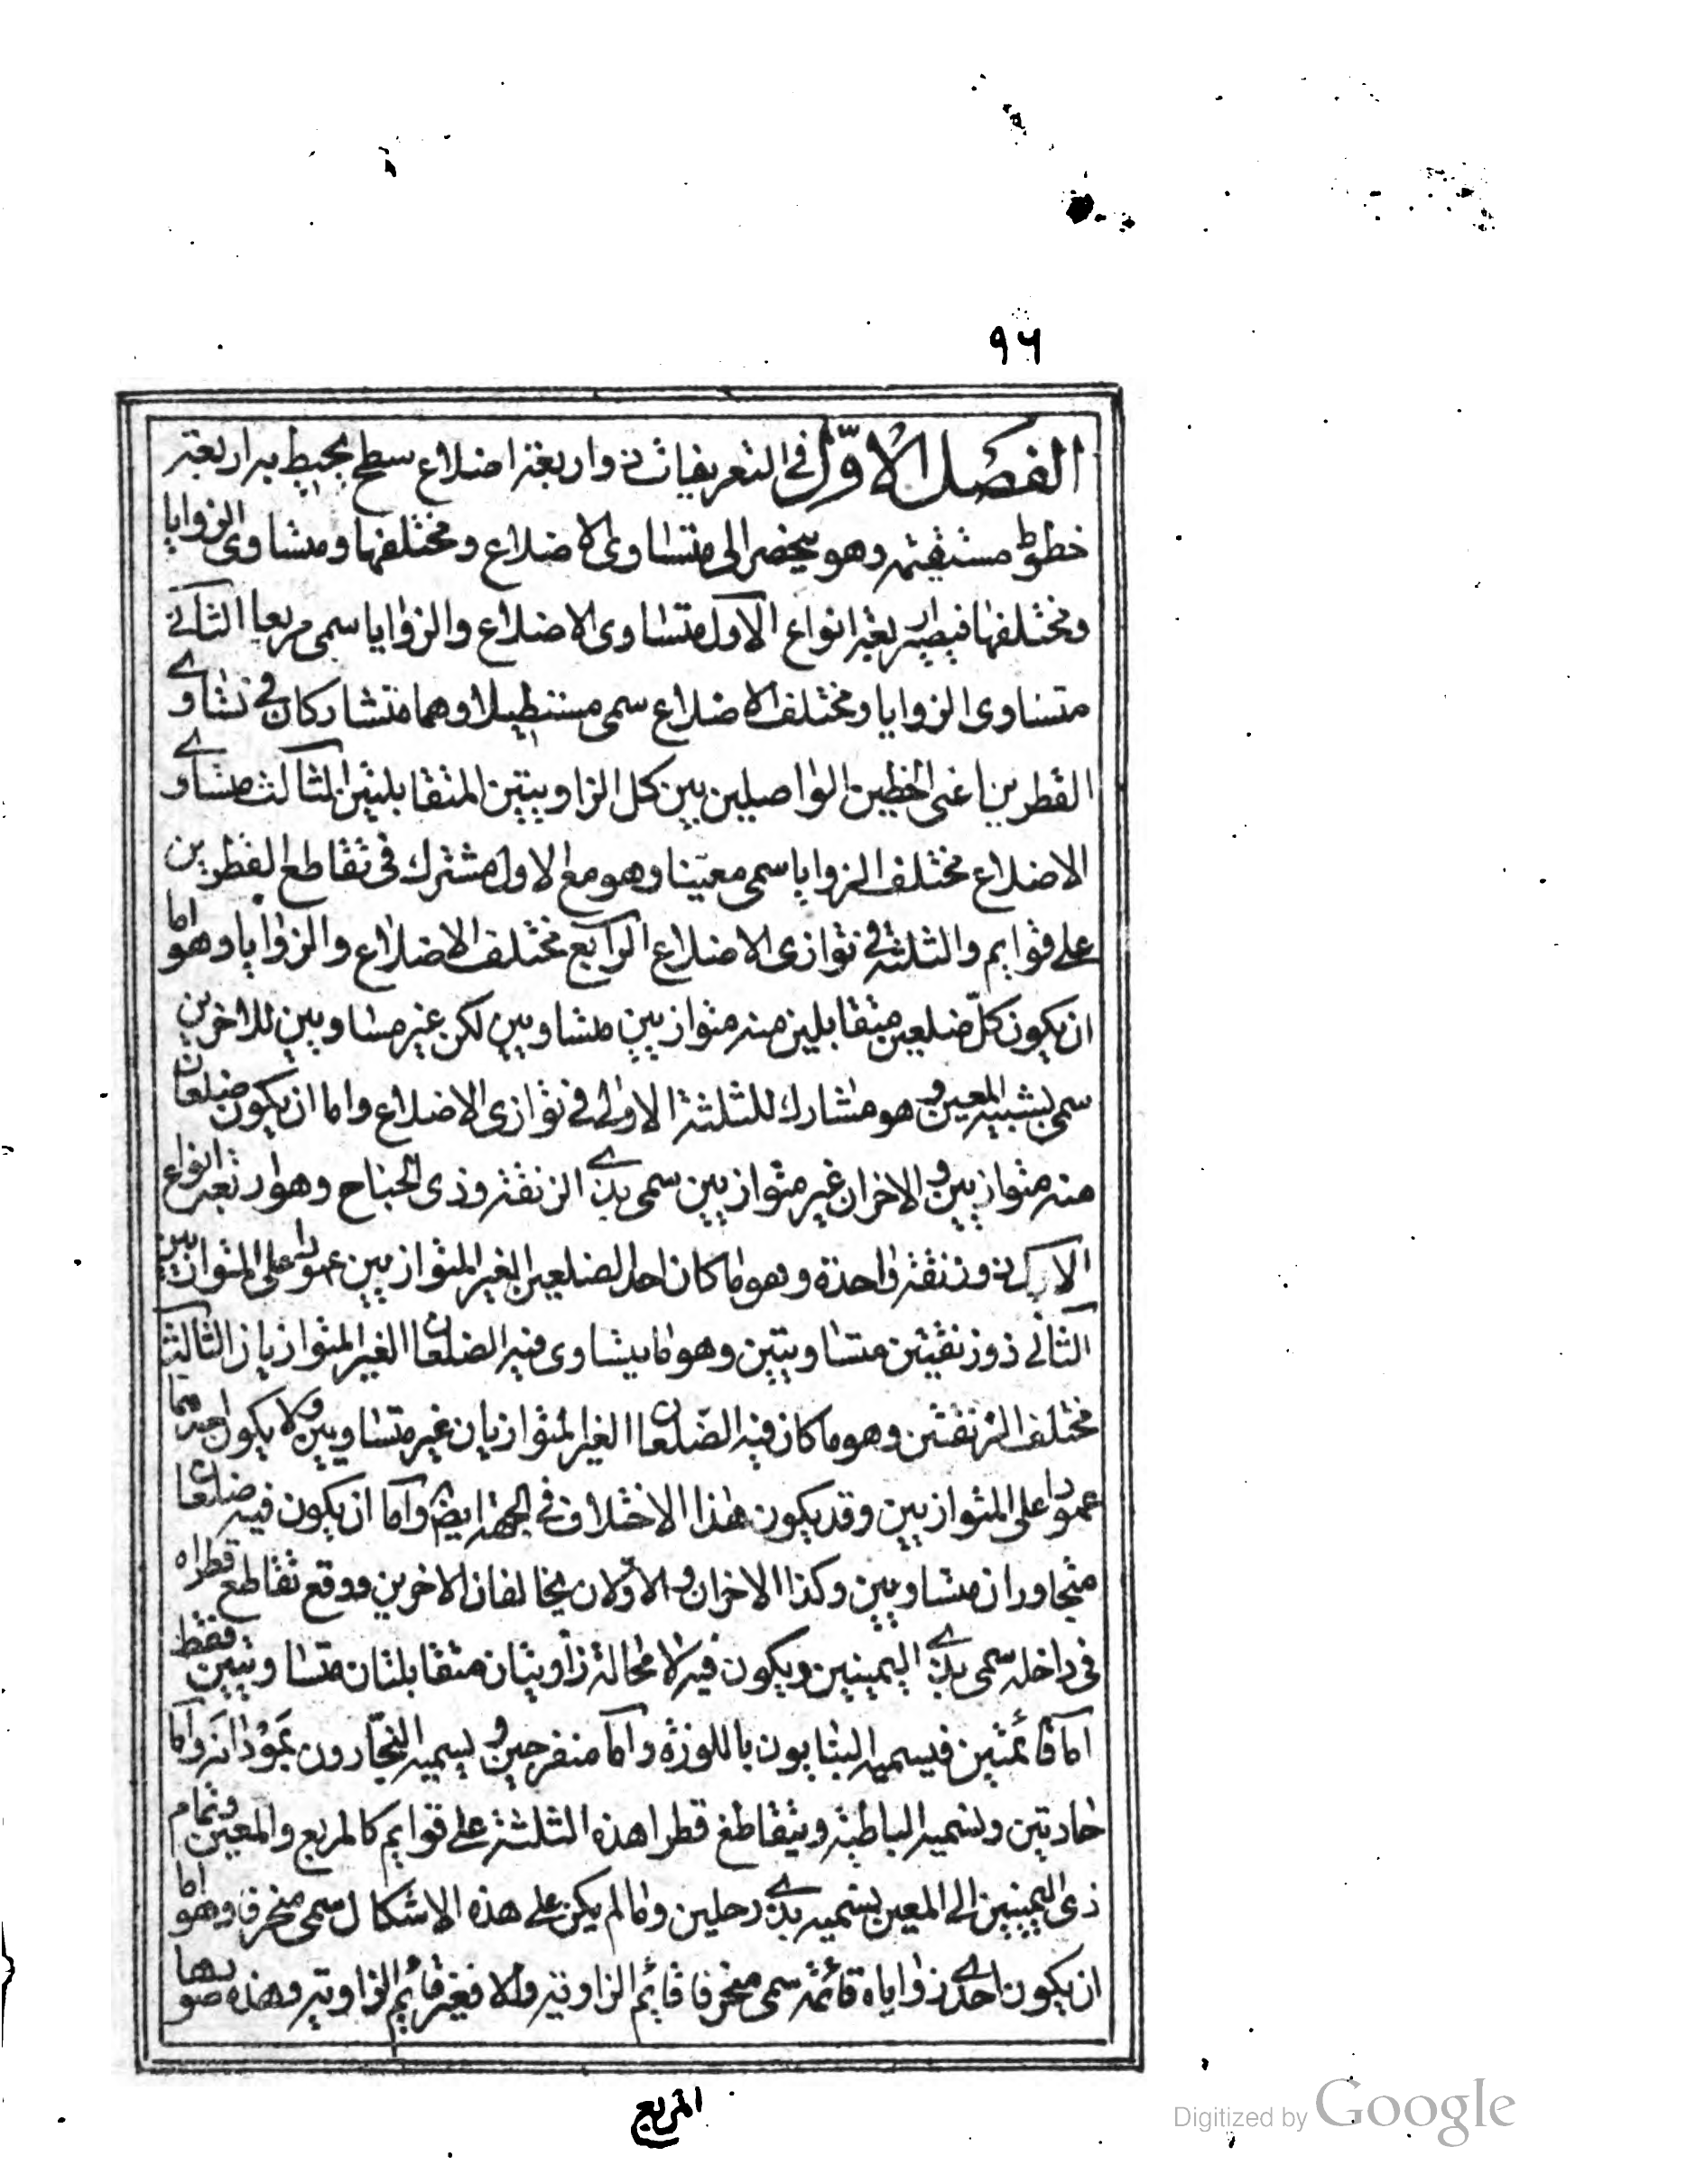 ٩٦
الفصل الاوّل فی التعریفات ذو اربعة اضلاع سطح یحیط به اربعة
خطوط مستقیمة وهو ینحصر الی متساوی الاضلاع ومختلفها ومتساوی الزوایا
ومختلفها فیصیر اربعة انواع الاول متساوی الاضلاع والزوایا سمی مربعا الثانی
متساوی الزوایا ومختلف الاضلاع سمی مستطیلا وهما متشارکان فی تساوی
القطرین اعنی الخطین الواصلین بین کل الزاویتین المتقابلتین الثالث متساوی
الاضلاع مختلف الزوایا سمی معینا وهو مع الاول مشترك فی تقاطع القطرین
علی قوایم والثلثة فی توازی الاضلاع الرابع مختلف الاضلاع والزوایا وهو اما
ان یکون کلّ ضلعین متقابلین منه متوازیین متساویین لکن غیر مساویین للاخرین
سمی بشبیه المعین وهو مشارك للثلثة الاولی فی توازی الاضلاع واما ان یکون ضلعان
منه متوازیین والاخران غیر متوازیین سمی بذی الزنقة وذی الجناح وهو اربعة انواع
الاول ذو زنقة واحدة وهو ما کان احد الضلعین الغیر المتوازیین عمودا علی المتوازیین
الثانی ذو زنقتین متساویتین وهو ما یتساوی فیه الضلعان الغیر المتوازیان الثالث
مختلف الزنقتین وهو ما کان فیه الضّلعان الغیر المتوازیان غیر متساویین ولا یکون احدهما
عمودا علی المتوازیین وقد یکون هذا الاختلاف فی الجهة ایضا واما ان یکون فیه ضلعان
متجاوران متساویین وکذا الاخران والاوّلان یخالفان الاخرین ووقع تقاطع قطراه
فی داخله سمی بذی الیمینین ویکون فیه لا محالة زاویتان متقابلتان متساویتین فقط
اما قائمتین فیسمیه البنایون باللوزة واما منفرجتین ویسمیه النجّارون بموذانه واما
حادتین وتسمیه الباطیة ویتقاطع قطرا هذه الثلثة علی قوایم کالمربع والمعین وتمام
ذی الیمینین الی المعین یسمیه بذی رجلین وما لم یکن علی هذه الاشکال سمی منحرفا وهو اما
ان یکون احدی زوایاه قائمة سمی منحرفا قائم الزاویة والا فغیر قائم الزاویة وهذه صورها
المربع
Digitized by Google